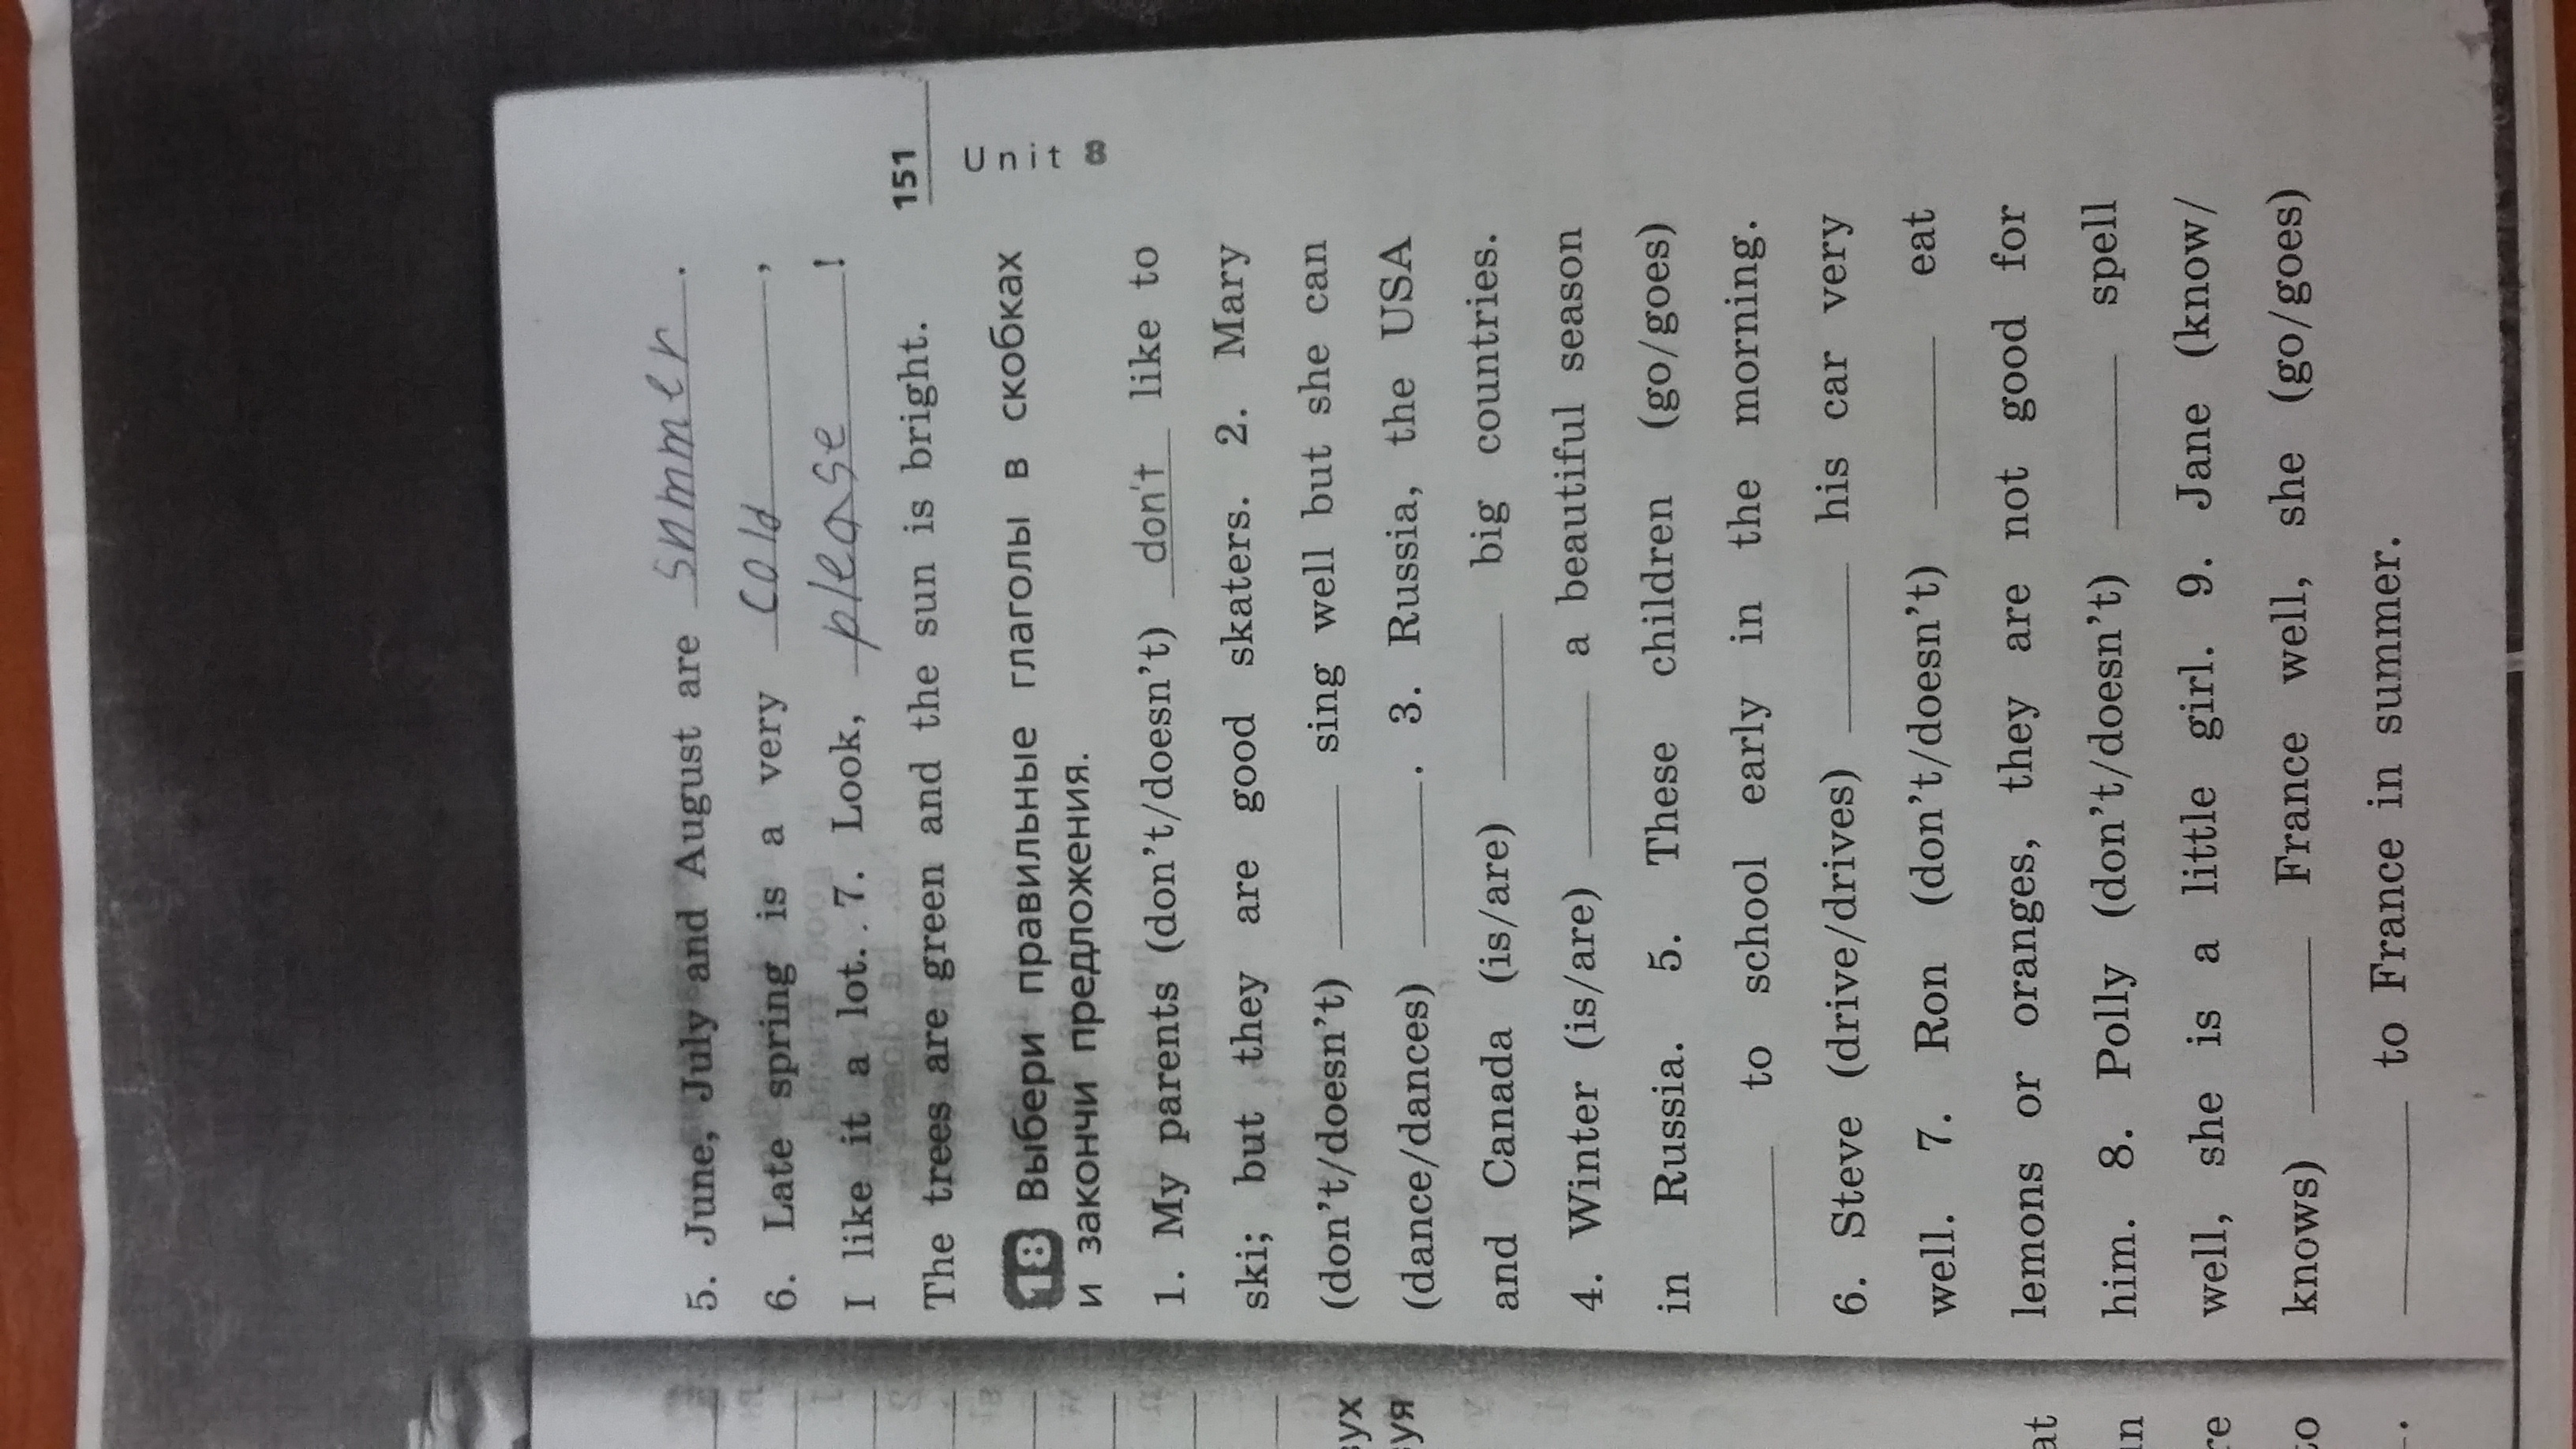 5. June, July and August are summer.
6. Late spring is a very cold,
I like it a lot. 7. Look, please!
The trees are green and the sun is bright.
151
Unit 8
18 Выбери правильные глаголы в скобках
и закончи предложения.
1. My parents (don't/doesn't) don't like to
ski; but they are good skaters. 2. Mary
(don't/doesn't) ____ sing well but she can
(dance/dances) ____. 3. Russia, the USA
and Canada (is/are) ____ big countries.
4. Winter (is/are) ____ a beautiful season
in Russia. 5. These children (go/goes)
____ to school early in the morning.
6. Steve (drive/drives) ____ his car very
well. 7. Ron (don't/doesn't) ____ eat
lemons or oranges, they are not good for
him. 8. Polly (don't/doesn't) ____ spell
well, she is a little girl. 9. Jane (know/
knows) ____ France well, she (go/goes)
____ to France in summer.
вух
зуя
at
in
re
to